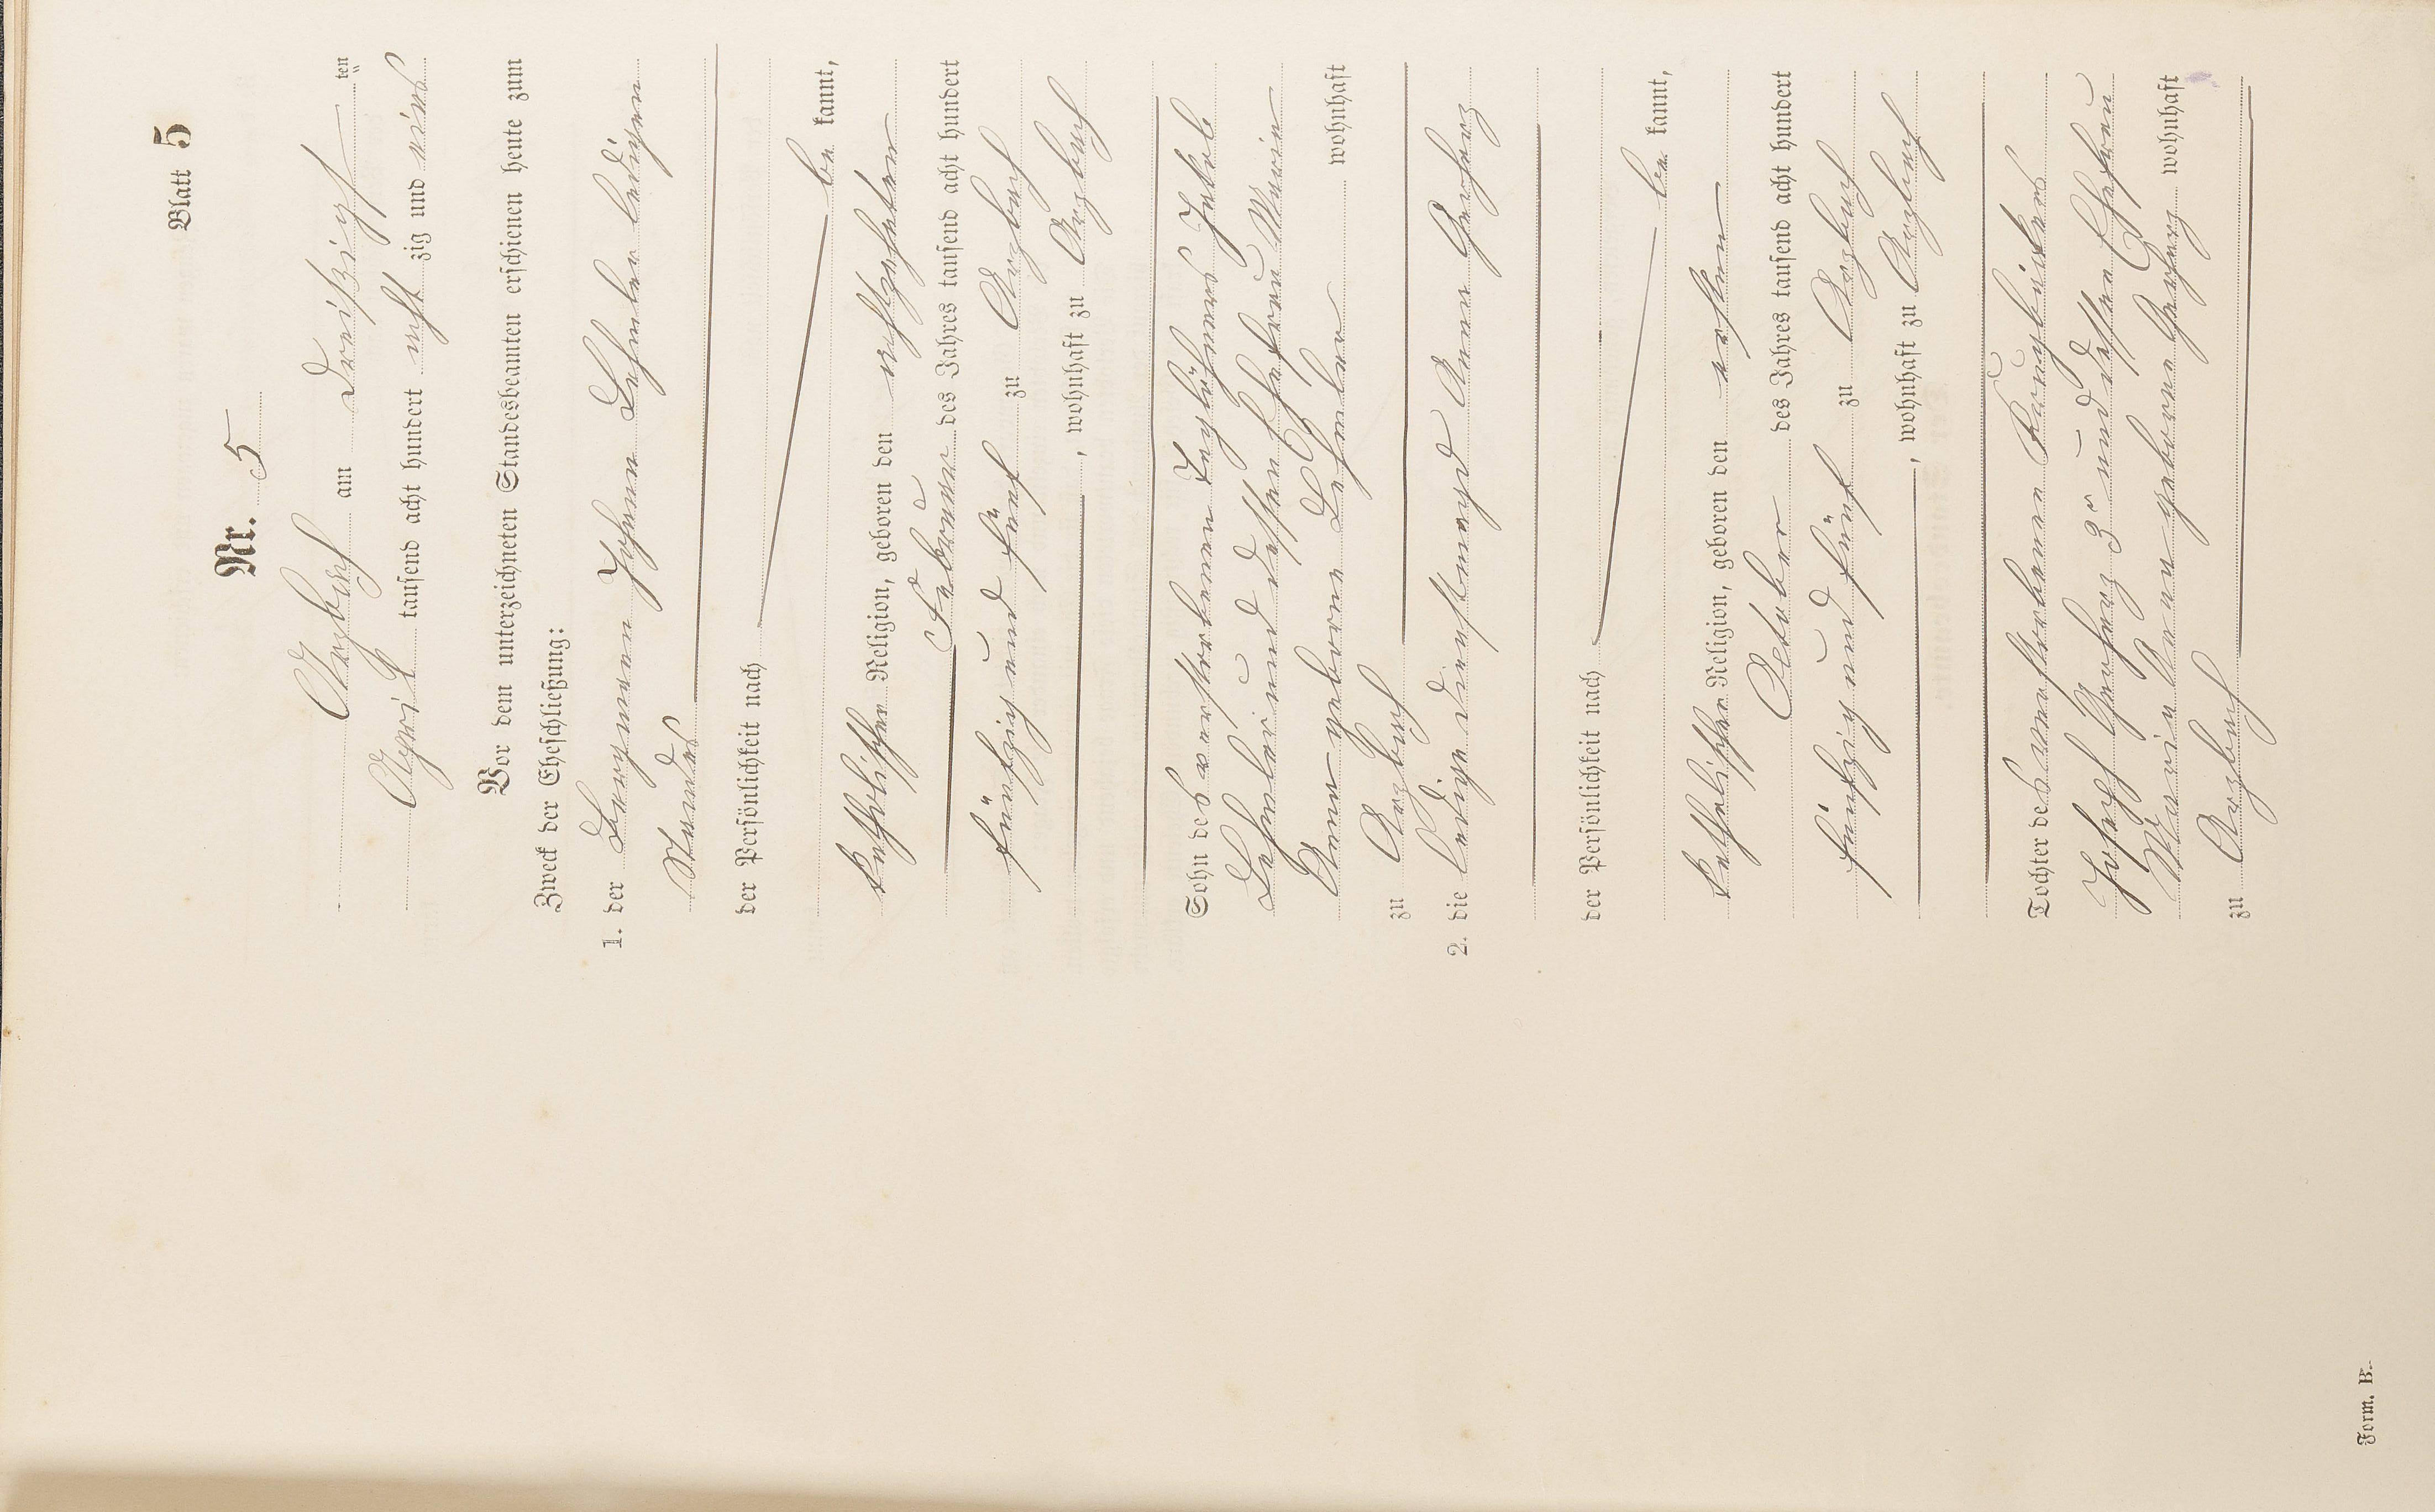 Blatt 5
Nr. 5
Arzbach am dreißigsten
April tausend acht hundert acht zig und eins
Vor dem unterzeichneten Standesbeamten erschienen heute zum
Zweck der Eheschließung:
1. der Bergmann Johann Lehmler ledigen
Standes
der Persönlichkeit nach
be kannt,
katholischer Religion, geboren den achtzehnten
Februar des Jahres tausend acht hundert
fünfzig und fünf zu Arzbach
, wohnhaft zu Arzbach
Sohn des verstorbenen Taglöhners Jakob
Lehmler und dessen Ehefrau Maria
Anna geborene Lehmler wohnhaft
zu Arzbach
2. die ledige Dienstmagd Anna Gerharz
der Persönlichkeit nach
be kannt,
katholischer Religion, geboren den ersten
October des Jahres tausend acht hundert
fünfzig und fünf zu Arzbach
, wohnhaft zu Arzbach
Tochter des verstorbenen
Joseph Gerharz 3r und dessen Ehefrau
Maria Anna geborene Gerharz wohnhaft
zu Arzbach
Form. B.